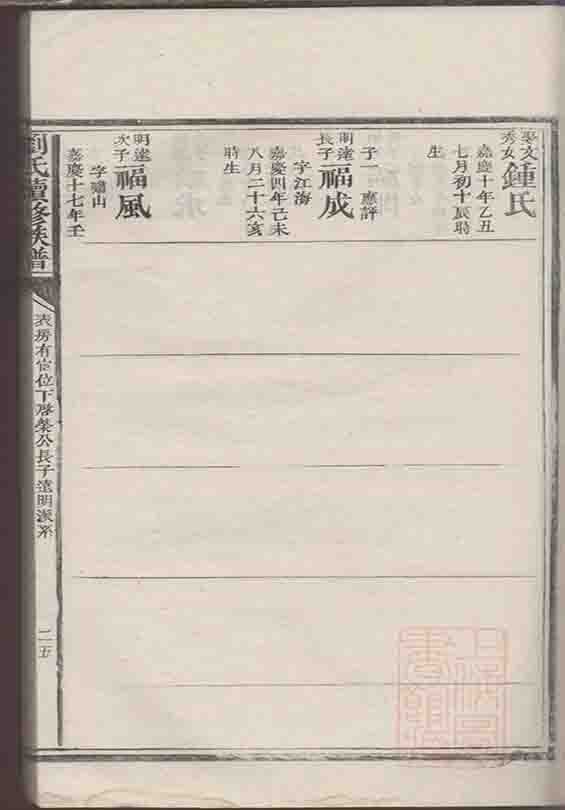 娶文秀女鍾氏
嘉慶十年乙丑
七月初十辰時
生
子一 應評
明達長子福成
字江海
嘉慶四年己未
八月二十六亥
時生
明達次子福風
字嘯山
嘉慶十七年壬
劉氏續修族譜
表房有
位下啓榮公長子達明派系
二五